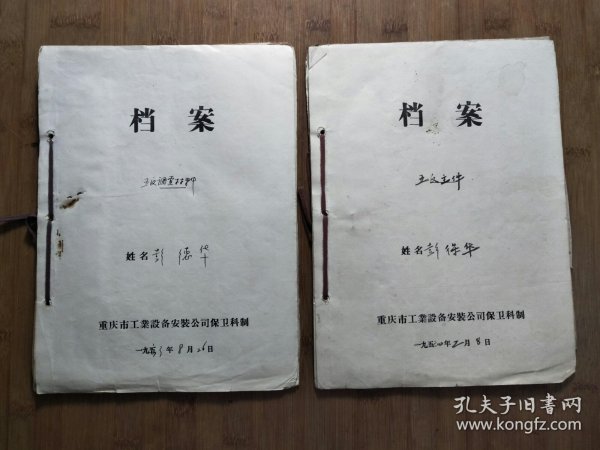 档 案
五反調查材料
姓名 彭德华
重庆市工業設备安裝公司保卫科制
一九五三年8月26日
档 案
五反立件
姓名 彭保华
重庆市工業設备安裝公司保卫科制
一九五四年二月8日
孔夫子旧书网
www.kongfz.com